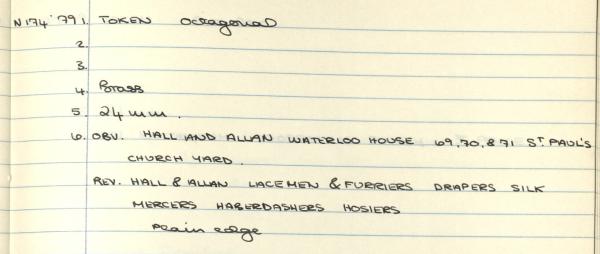 N174'79 1. TOKEN Octagonal
2.
3.
4. Brass
5. 24mm.
6. OBV. HALL AND ALLAN WATERLOO HOUSE 69,70,&71 ST. PAUL'S
CHURCH YARD.
REV. HALL & ALLAN LACEMEN & FURRIERS DRAPERS SILK
MERCERS HABERDASHERS HOSIERS
Plain edge